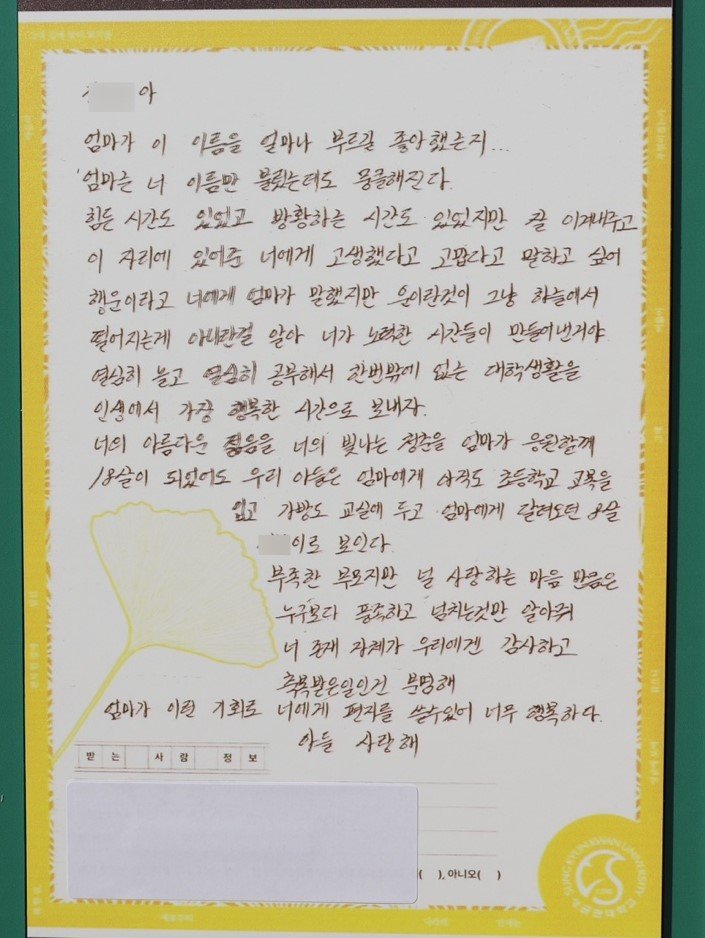 아
엄마가 이 이름을 얼마나 부르길 좋아했는지...
엄마는 너 이름만 불렀는데도 뭉클해진다.
힘든 시간도 있었고 방황하는 시간도 있었지만 잘 이겨내주고
이 자리에 있어준 너에게 고생했다고 고맙다고 말하고 싶어
행운이라고 너에게 엄마가 말했지만 운이란것이 그냥 하늘에서
떨어지는게 아니란걸 알아 너가 노력한 시간들이 만들어낸거야
열심히 놀고 열심히 공부해서 한번밖에 없는 대학생활을
인생에서 가장 행복한 시간으로 보내자.
너의 아름다운 젊음을 너의 빛나는 청춘을 엄마가 응원할께
18살이 되었어도 우리 아들은 엄마에게 아직도 초등학교 교복을
입고 가방도 교실에 두고 엄마에게 달려오던 8살
이로 보인다.
부족한 부모지만 널 사랑하는 마음 만큼은
누구보다 풍족하고 넘치는것만 알아줘
너 존재 자체가 우리에겐 감사하고
축복받은일인건 분명해
엄마가 이런 기회로 너에게 편지를 쓸수있어 너무 행복하다.
아들 사랑해
받는 사람 정보
( ), 아니오( )
SUNG KYUN KWAN UNIVERSITY
성균관대학교